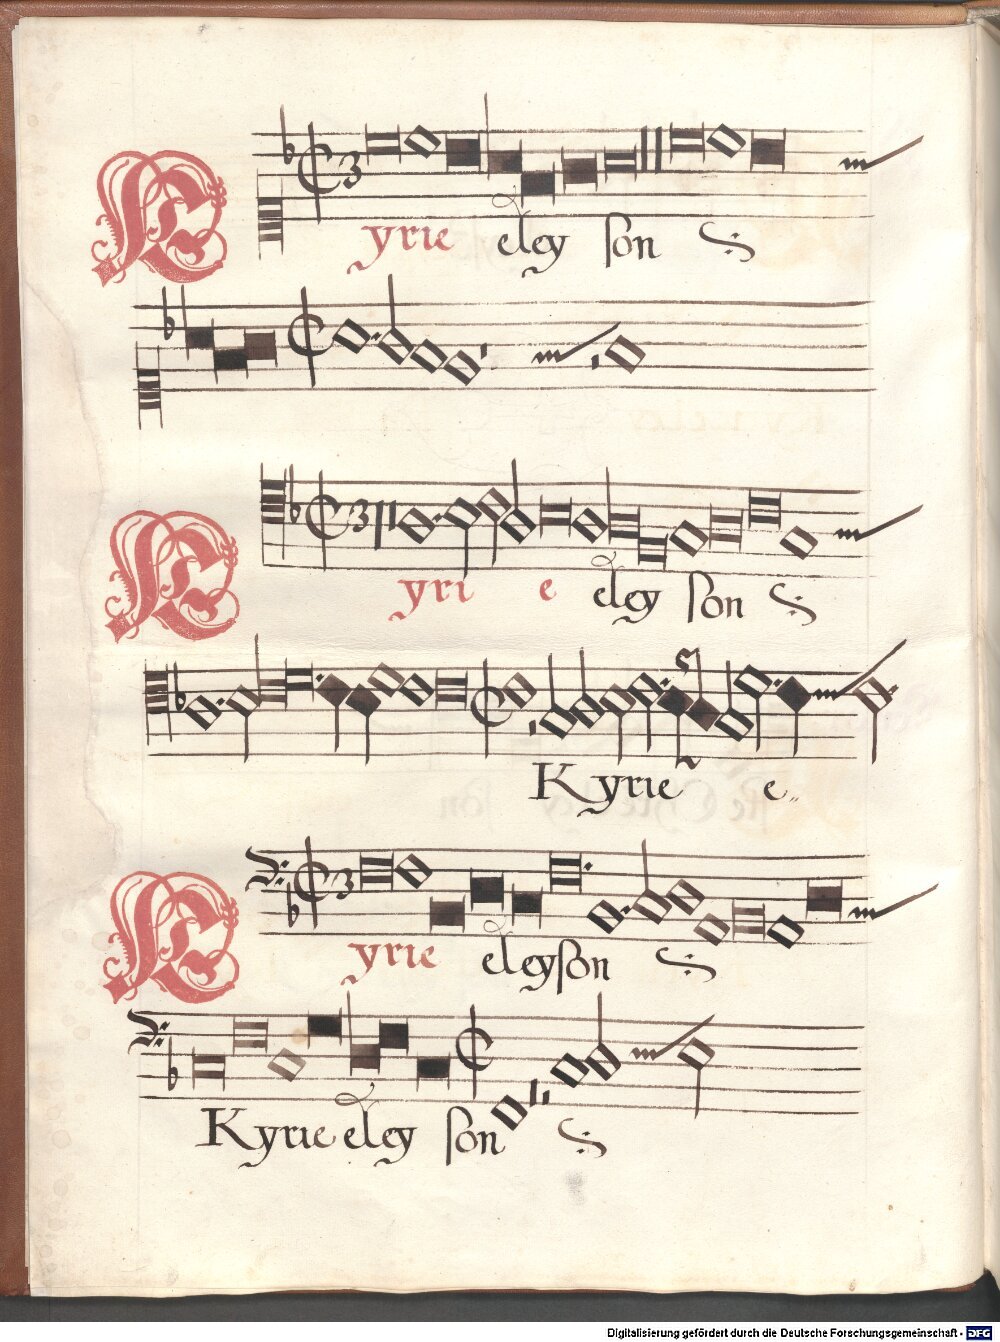 Kyrie eleyson
Kyri e eleyson
Kyrie e
Kyrie eleyson
Kyrie eleyson
Digitalisierung gefördert durch die Deutsche Forschungsgemeinschaft - DFG